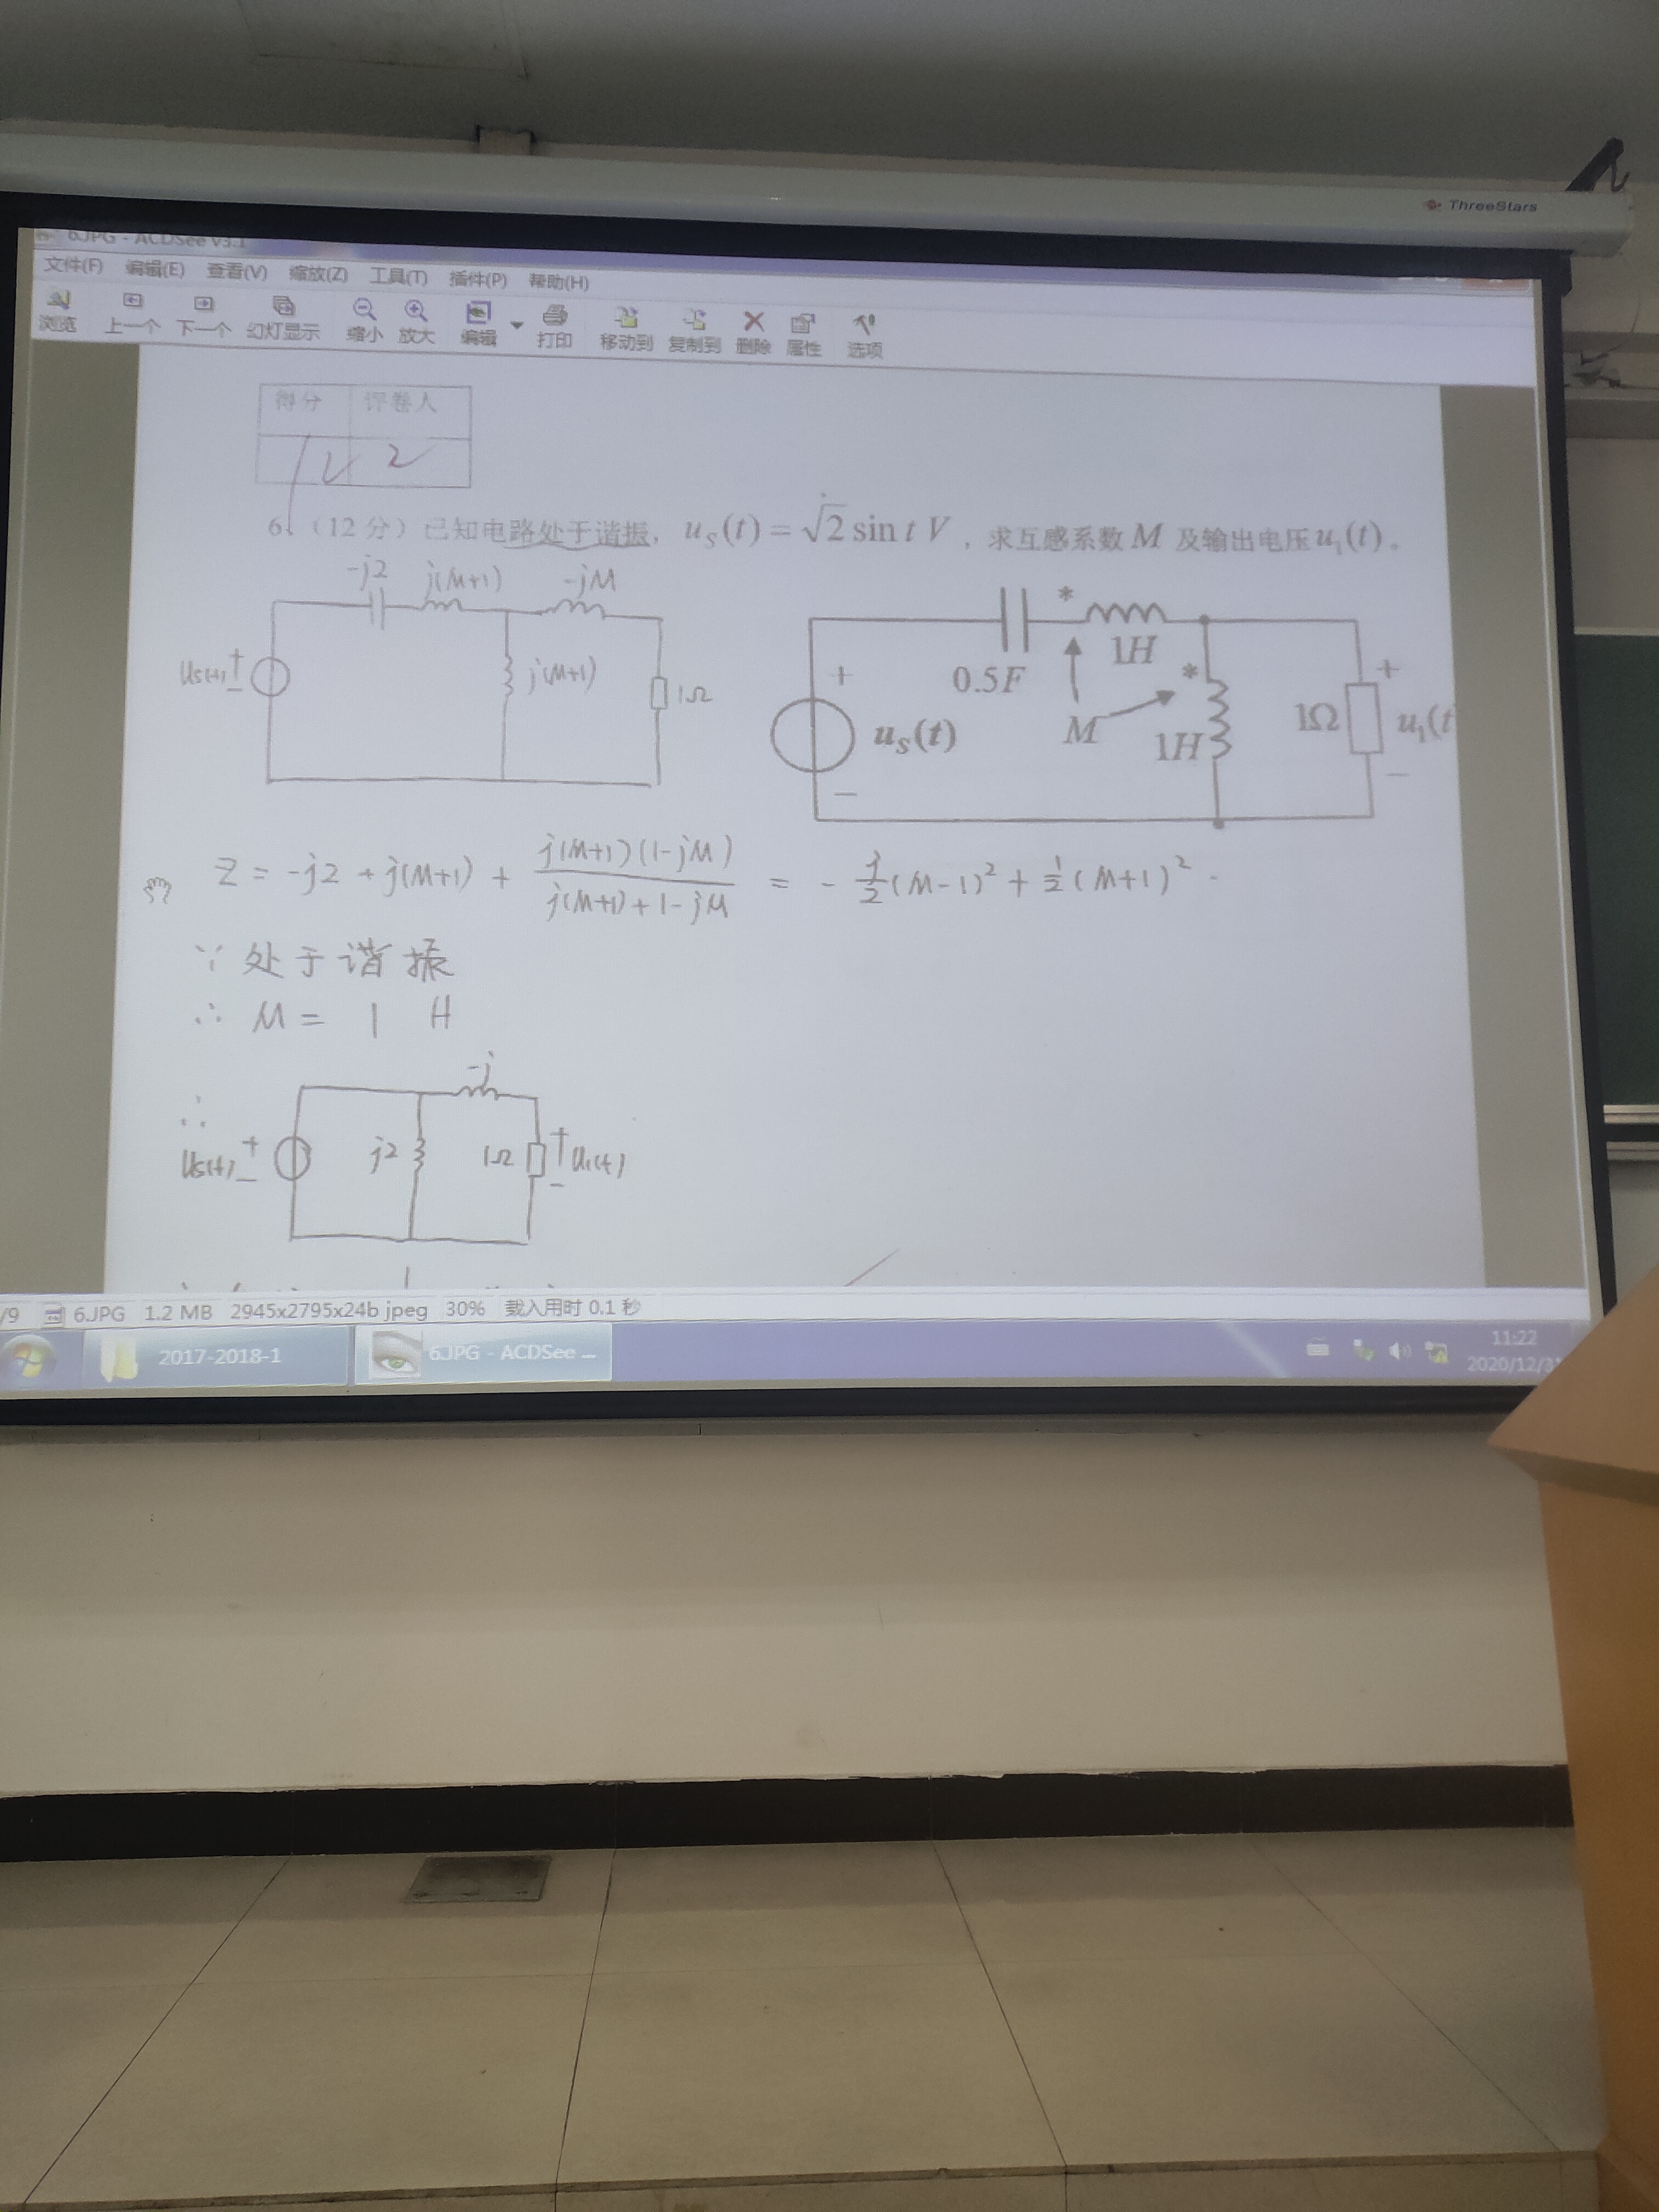 ThreeStars
6.JPG - ACDSee v3.1
文件(F) 编辑(E) 查看(V) 缩放(Z) 工具(T) 插件(P) 帮助(H)
浏览 上一个 下一个 幻灯显示 缩小 放大 编辑 打印 移动到 复制到 删除 属性 选项
得分 评卷人
12
6、（12 分）已知电路处于谐振，u_S(t) = √2 sin t V，求互感系数 M 及输出电压 u₁(t)。
-j2 j(M+1) -jM
Us(t) + - j(M+1) 1Ω
* 1H
0.5F * +
+ M 1H 1Ω u₁(t
u_S(t)
- -
Z = -j2 + j(M+1) + j(M+1)(1-jM) / j(M+1)+1-jM = - j/2 (M-1)² + 1/2 (M+1)²
∵ 处于谐振
∴ M = 1 H
-j
∴
Us(t) + - j2 1Ω + U₁(t) -
/9 6.JPG 1.2 MB 2945x2795x24b jpeg 30% 载入用时 0.1 秒
2017-2018-1 6.JPG - ACDSee ... 11:22
2020/12/31